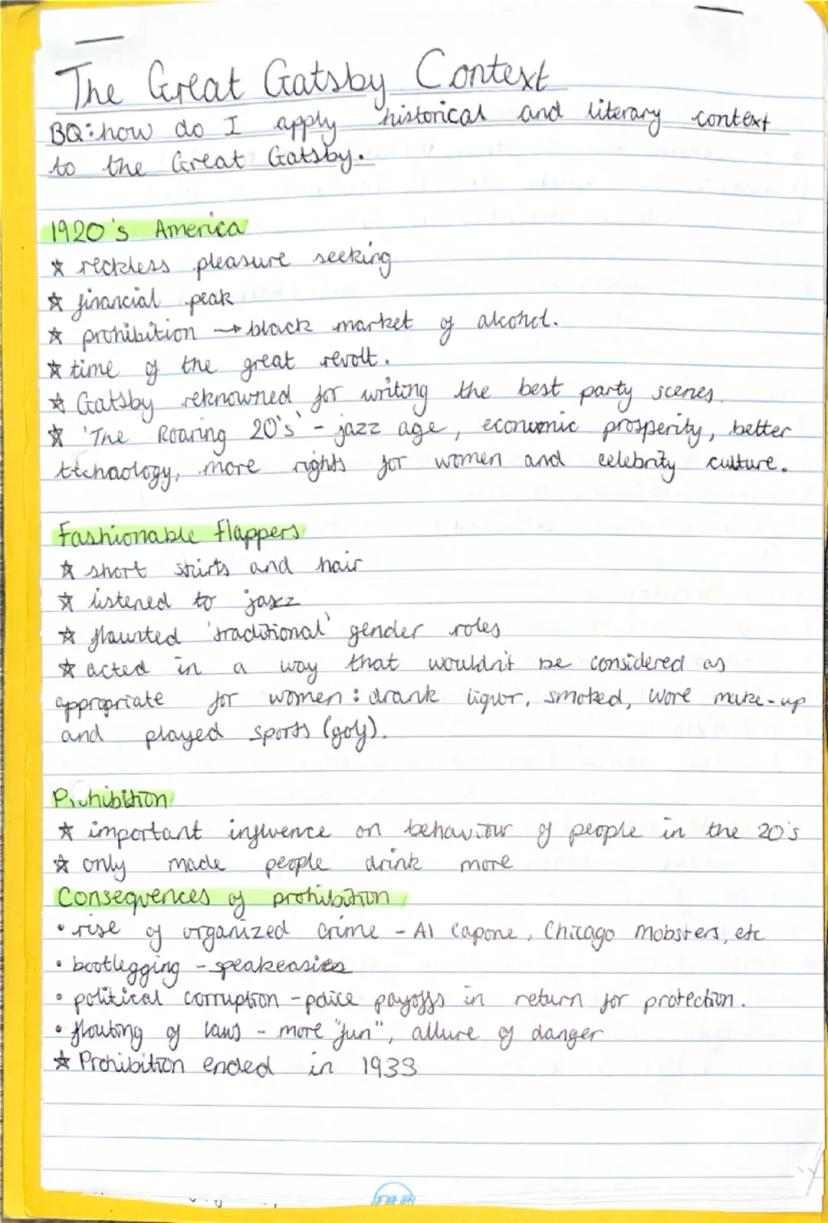 The Great Gatsby Context
BQ: how do I apply historical and literary context
to the Great Gatsby.
1920's America
☆ reckless pleasure seeking
☆ financial peak
☆ prohibition → black market of alcohol.
☆ time of the great revolt.
☆ Gatsby reknowned for writing the best party scenes.
☆ 'The Roaring 20's' - jazz age, economic prosperity, better
technology, more rights for women and celebrity culture.
Fashionable Flappers
☆ short skirts and hair
☆ listened to jazz
☆ flaunted 'traditional' gender roles
☆ acted in a way that wouldn't be considered as
appropriate for women: drank liquor, smoked, wore make-up
and played sports (golf).
Prohibition
☆ important influence on behaviour of people in the 20's
☆ only made people drink more
Consequences of prohibition
• rise of organized crime - Al Capone, Chicago Mobsters, etc
• bootlegging - speakeasies
• political corruption - police payoffs in return for protection.
• flouting of laws - more "fun", allure of danger
☆ Prohibition ended in 1933